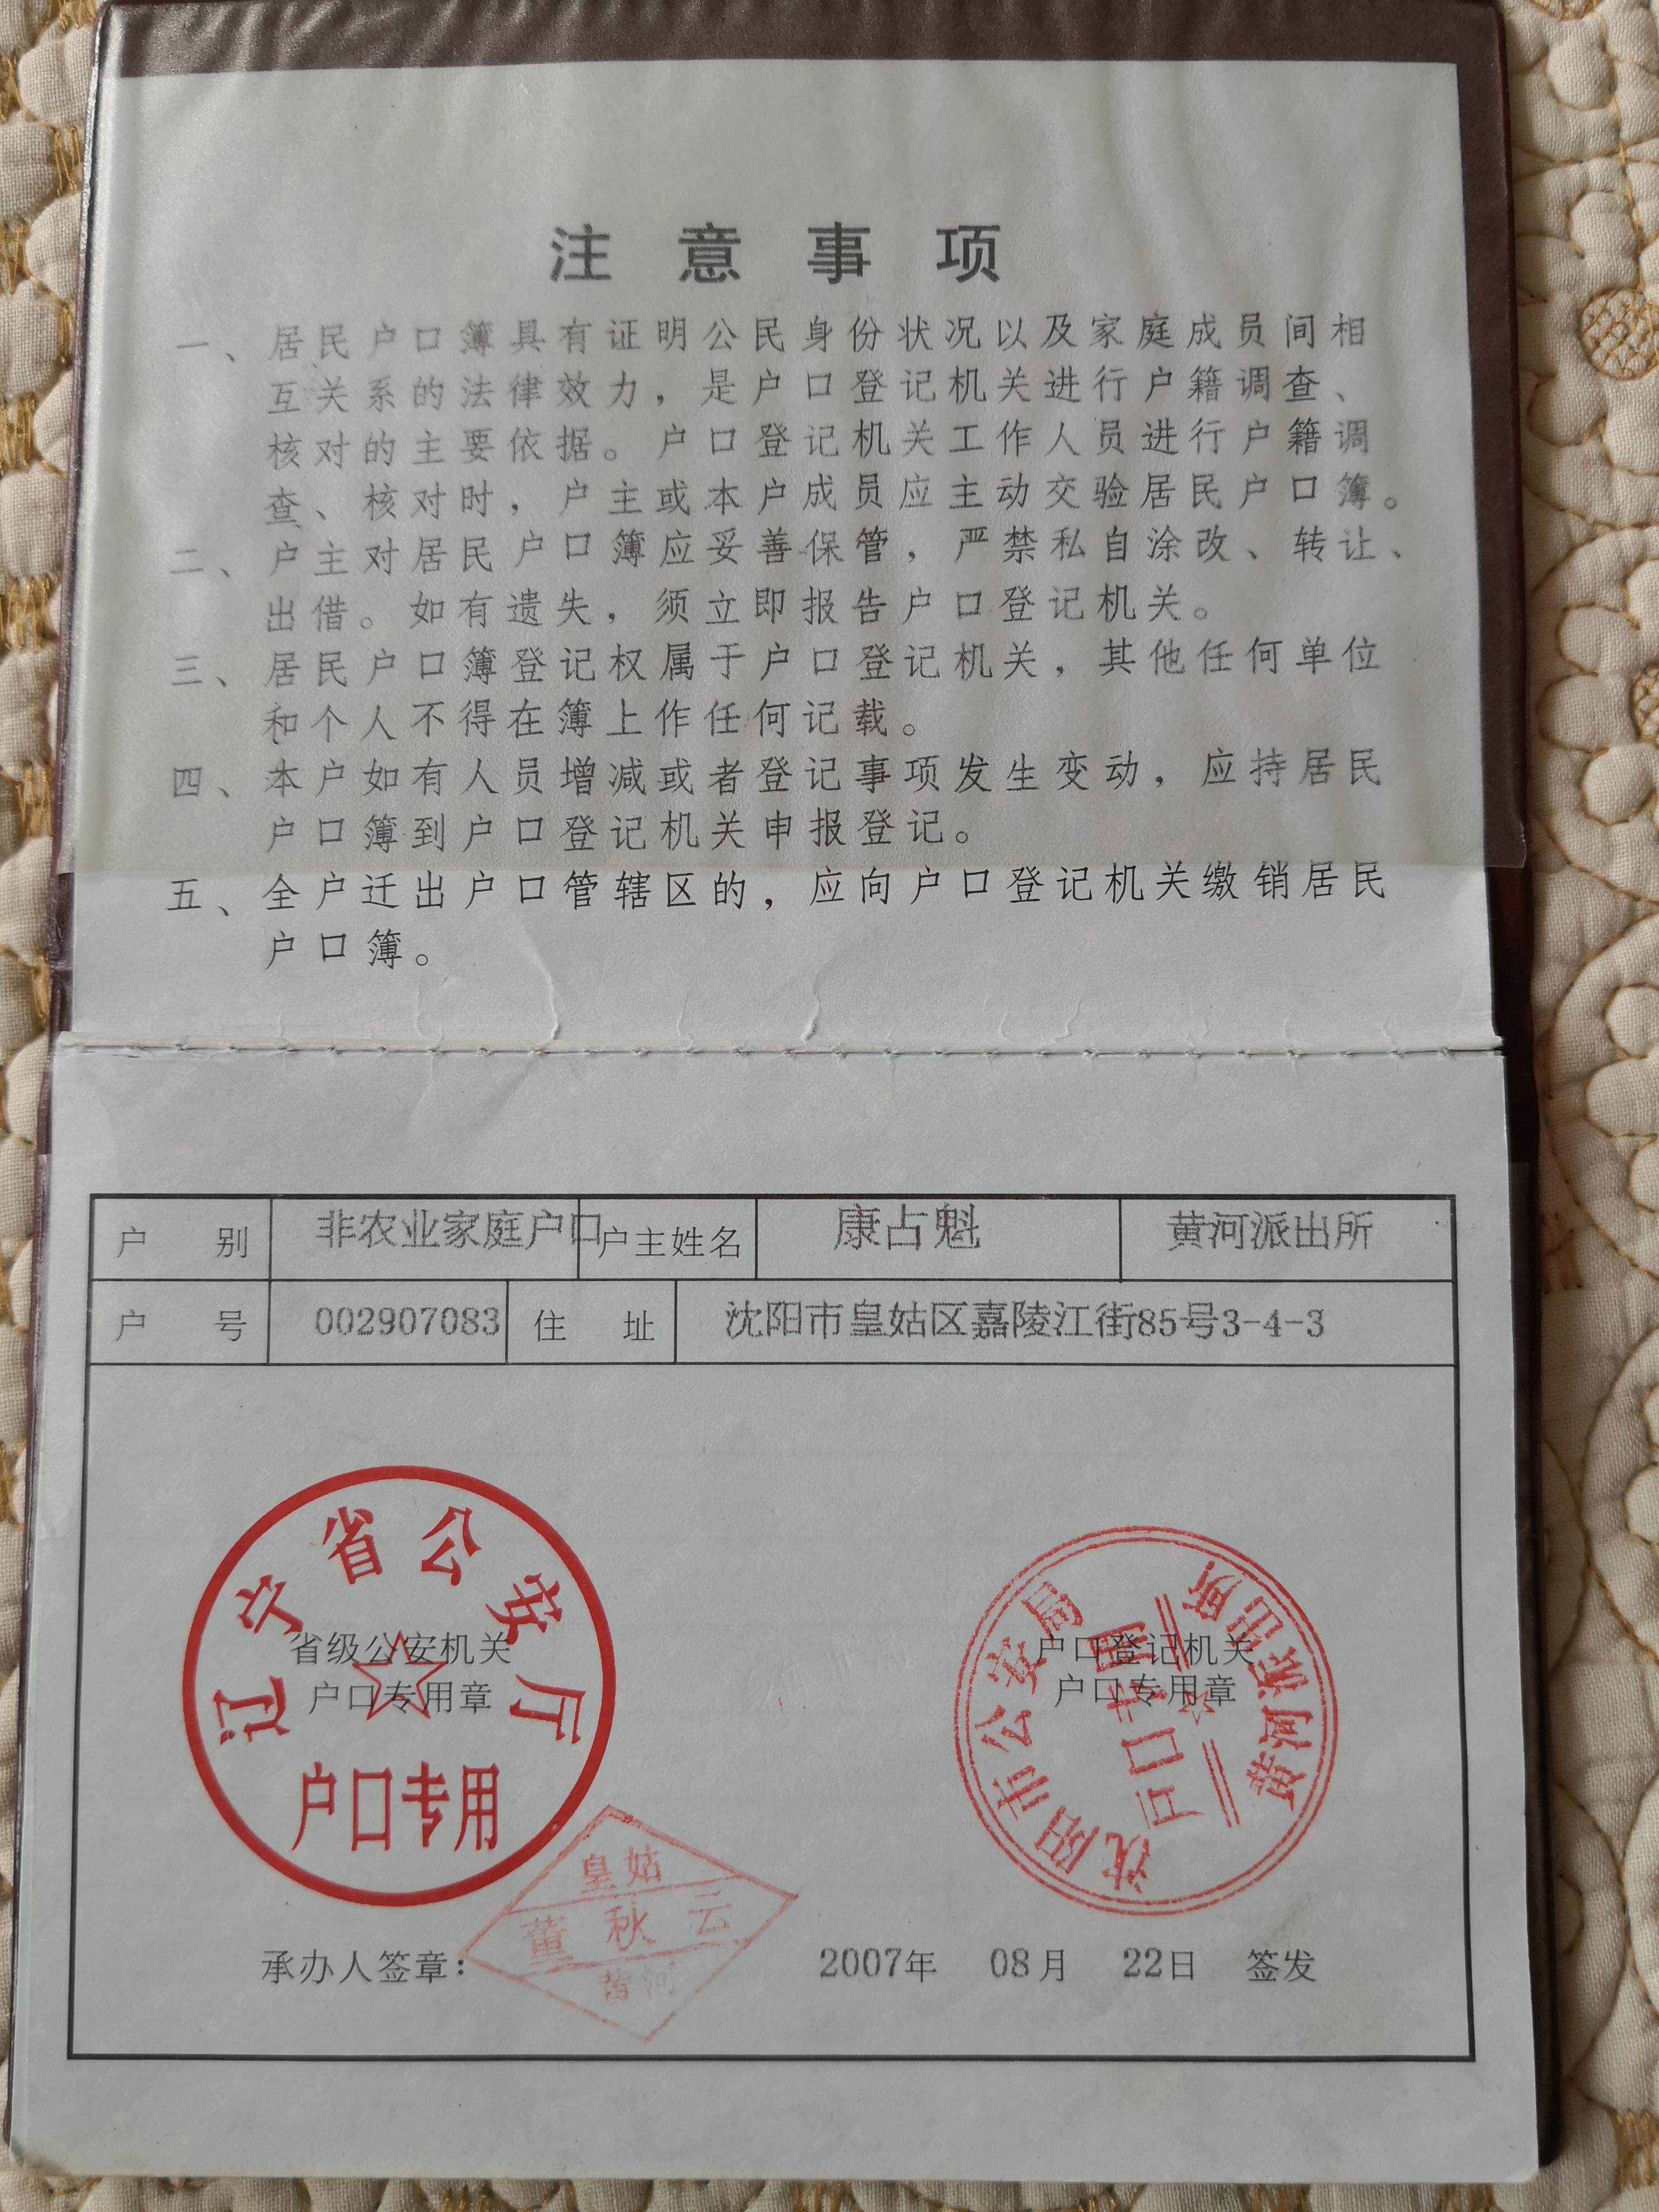 注意事项
一、居民户口簿具有证明公民身份状况以及家庭成员间相
互关系的法律效力，是户口登记机关进行户籍调查、
核对的主要依据。户口登记机关工作人员进行户籍调
查、核对时，户主或本户成员应主动交验居民户口簿。
二、户主对居民户口簿应妥善保管，严禁私自涂改、转让、
出借。如有遗失，须立即报告户口登记机关。
三、居民户口簿登记权属于户口登记机关，其他任何单位
和个人不得在簿上作任何记载。
四、本户如有人员增减或者登记事项发生变动，应持居民
户口簿到户口登记机关申报登记。
五、全户迁出户口管辖区的，应向户口登记机关缴销居民
户口簿。
户别 非农业家庭户口 户主姓名 康占魁 黄河派出所
户号 002907083 住址 沈阳市皇姑区嘉陵江街85号3-4-3
辽宁省公安厅
省级公安机关
户口专用章
户口专用
沈阳市公安局黄河派出所
户口登记机关
户口专用章
户口专用
皇姑
董秋云
黄河
承办人签章： 2007年 08月 22日 签发